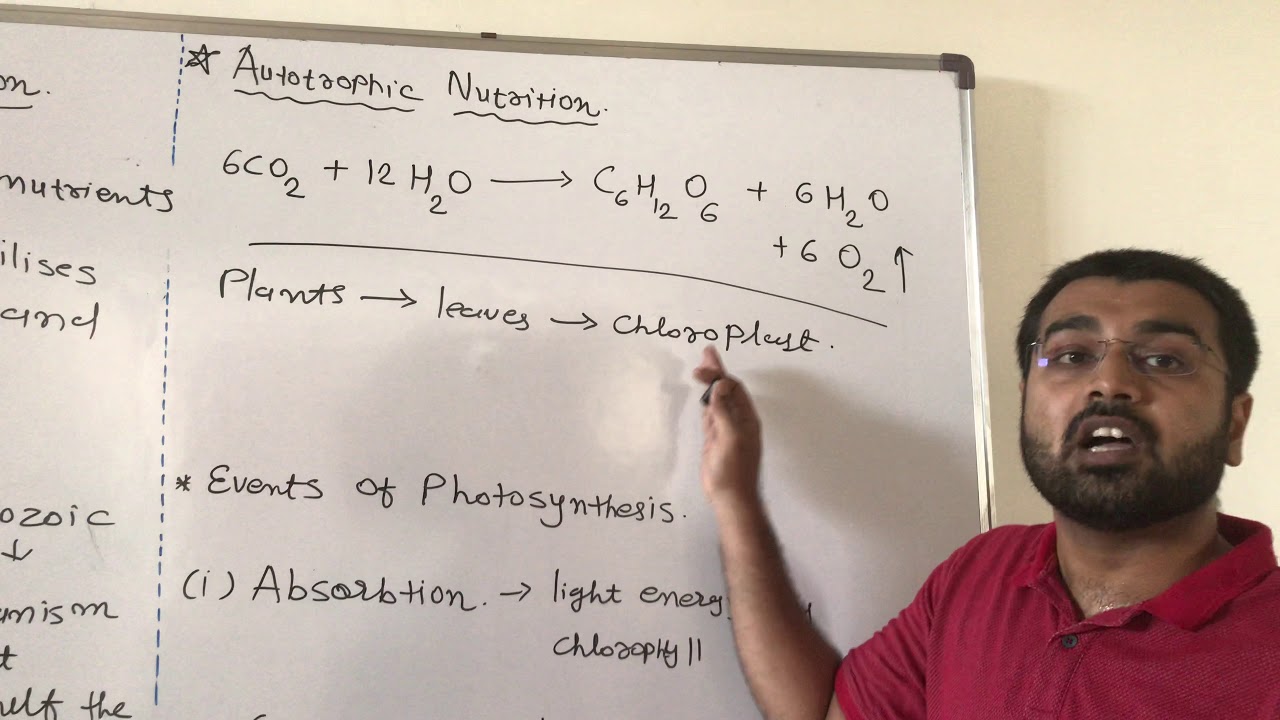 on.
nutrients
ilises
and
ozoic
↓
nism
t
the
☆ Autotrophic Nutrition.
6CO₂ + 12 H₂O ⟶ C₆H₁₂O₆ + 6 H₂O
+ 6 O₂ ↑
Plants → leaves → Chloroplast.
* Events of Photosynthesis.
(i) Absorbtion. → light energy
chlorophyll